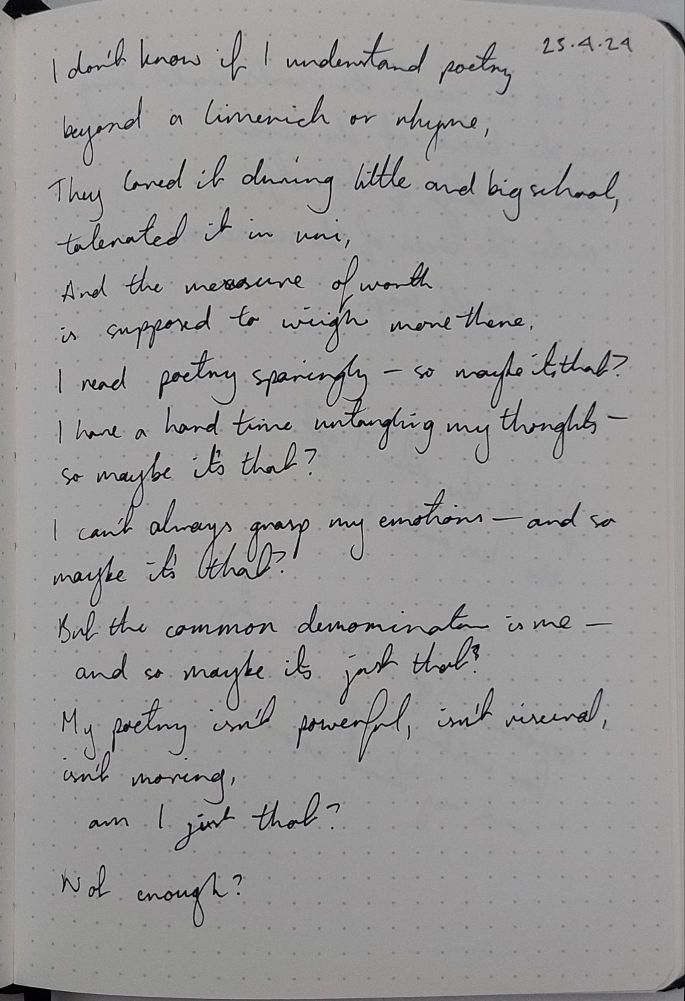 25.4.24
I don't know if I understand poetry
beyond a limerich or rhyme,
They loved it during little and big school,
tolerated it in uni,
And the measure of worth
is supposed to weigh more there.
I read poetry sparingly – so maybe it's that?
I have a hard time untangling my thoughts –
so maybe it's that?
I can't always grasp my emotions – and so
maybe it's that?
But the common denominator is me –
and so maybe its just that?
My poetry isn't powerful, isn't visceral,
isn't moving,
am I just that?
Not enough?